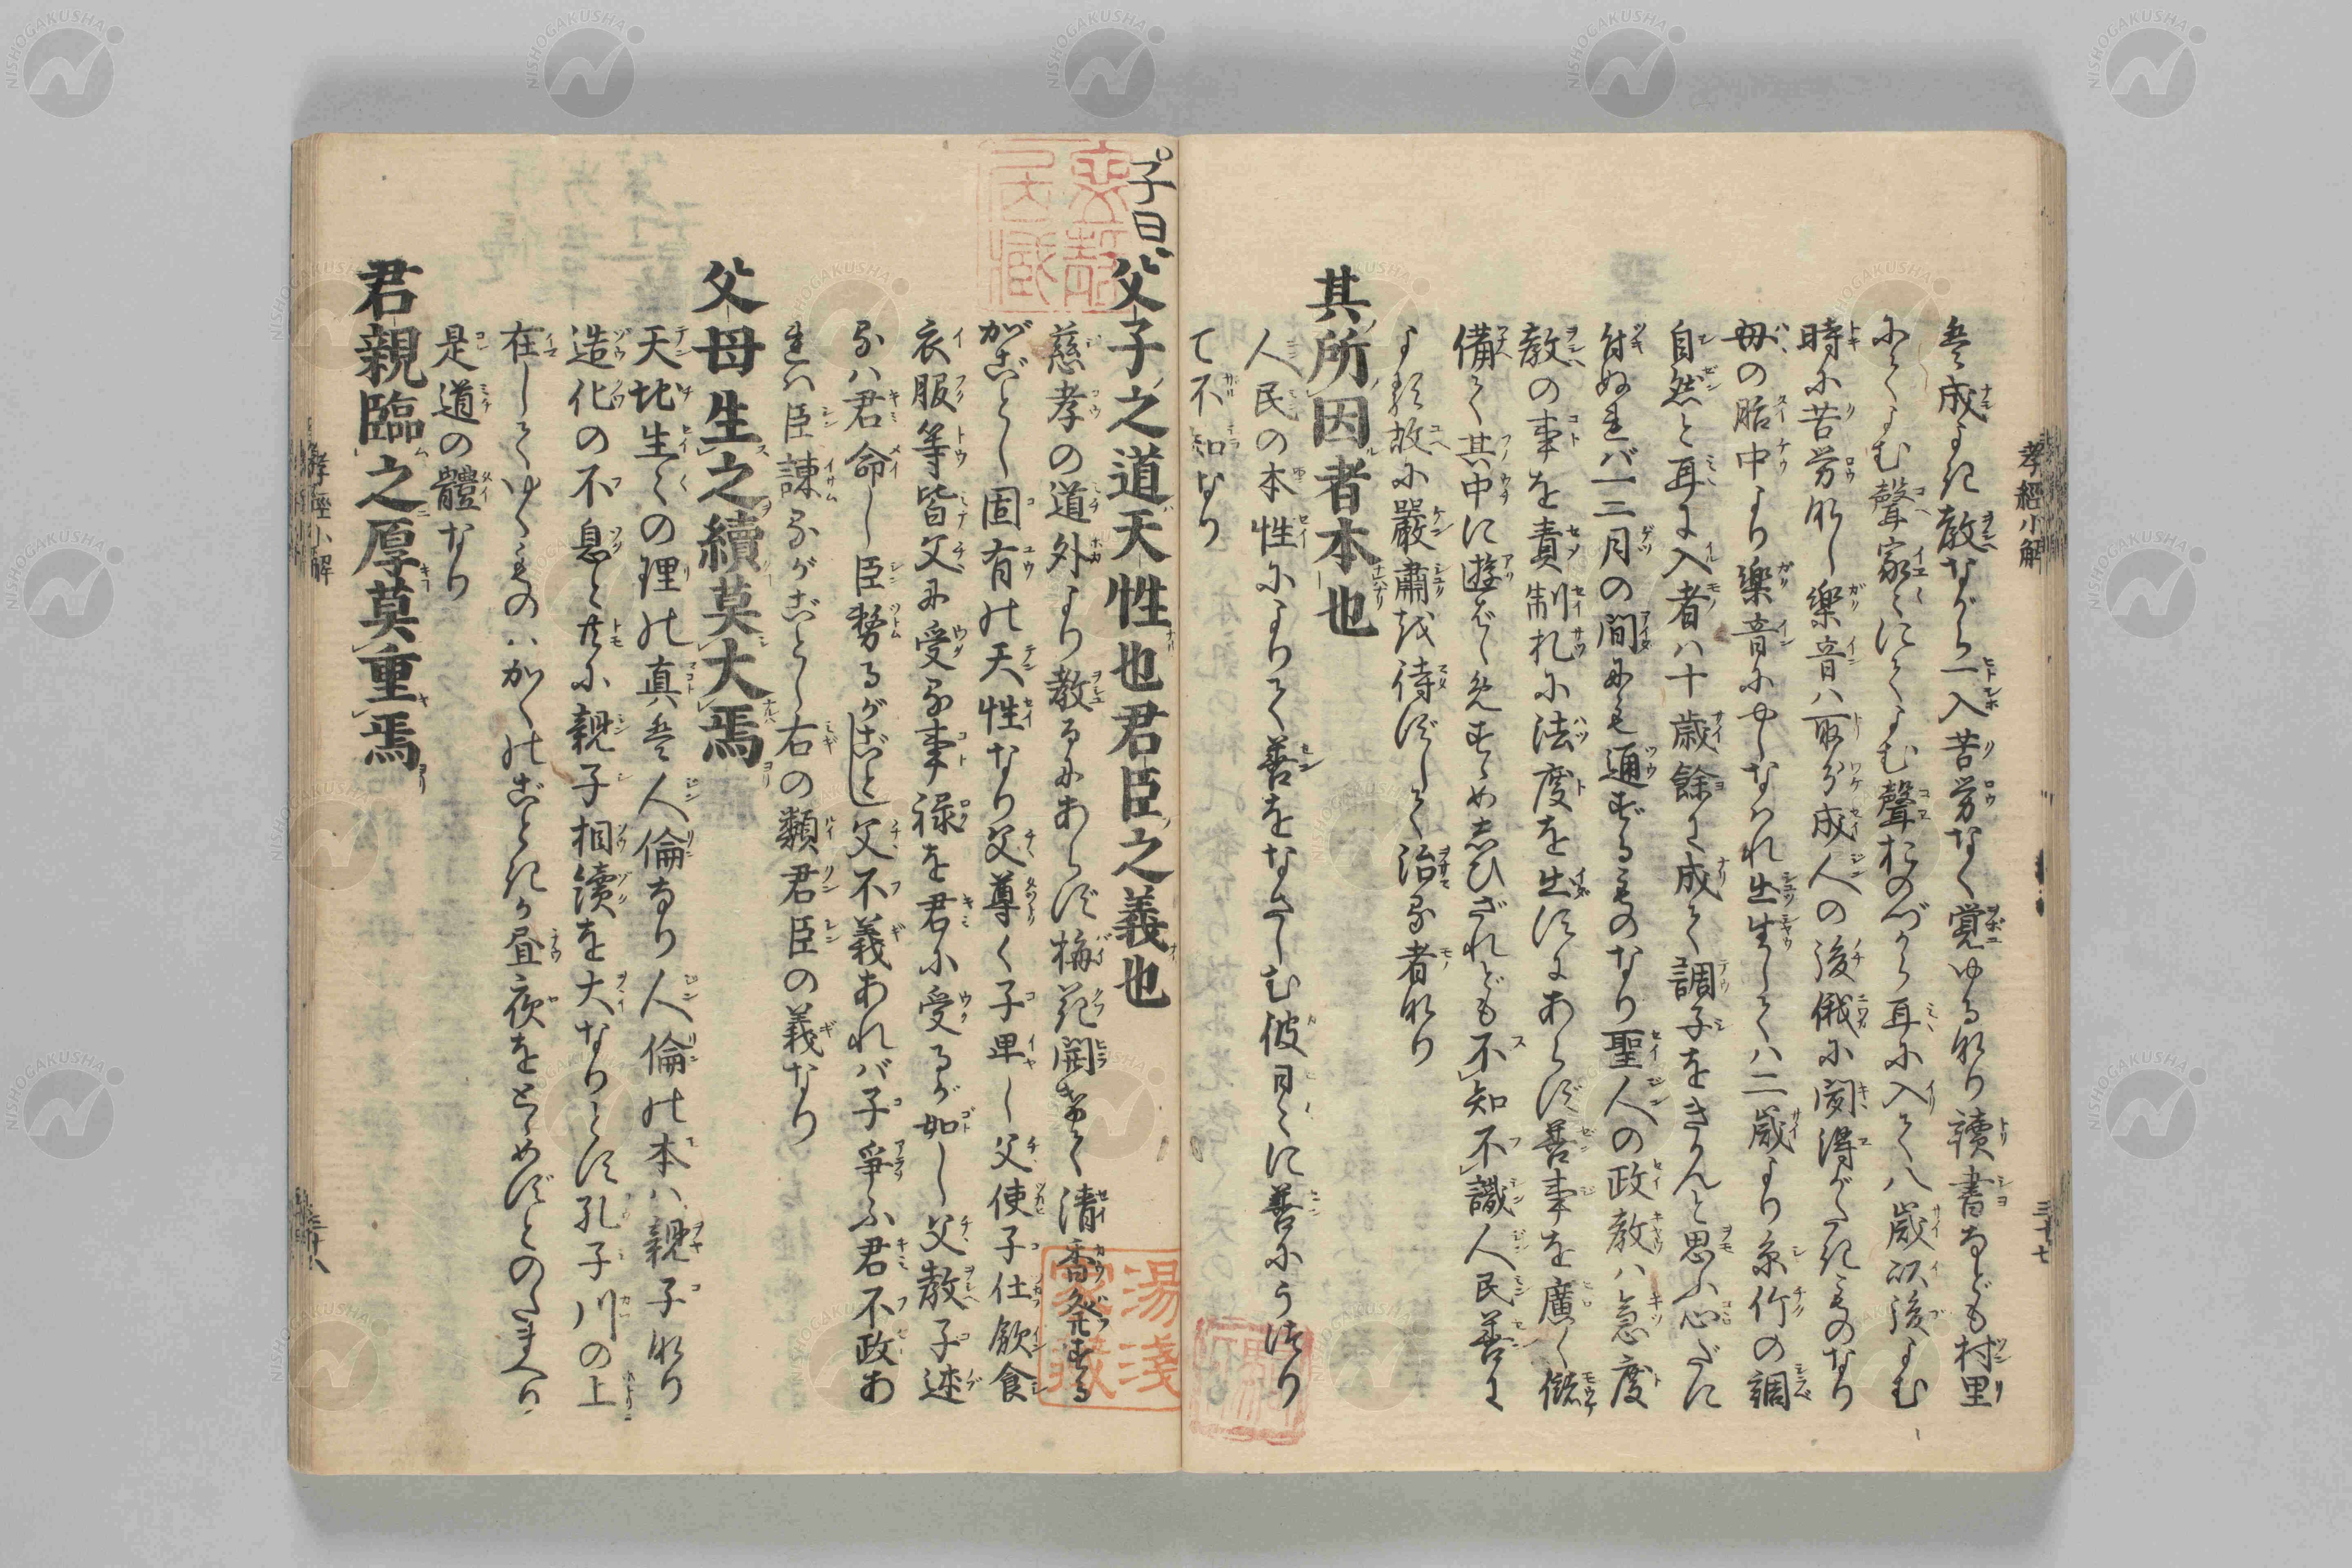 孝經小解
三十七
無成よき教ながら一入苦労なく覚ゆる也り讀書なども村里
にてよむ聲家〻にてよむ聲おのづから耳に入て八歳以後よむ
時に苦労なし樂音ハ取分成人の後俄に聞得がたきものなり
母の胎中より樂音にやしなはれ出生してハ二歳より糸竹の調
自然と耳に入者ハ十歳餘に成て調子をきかんと思ふ心だに
付ぬれバ一二月の間にも通ずるものなり聖人の政教ハ急度
教の事を責制札に法度を出すにあらず善事を廣く儲
備て其中に遊ばしめすゝめ志ひざれども不知不識人民善に
よる故に嚴肅を待ずして治る者なり
其所因者本也
人民の本性によりて善をなさしむ彼日〻に善にうつり
て不知なり
子曰父子之道天性也君臣之義也
慈孝の道外より教るにあらず梅花開けて清香發する
がごとし固有の天性なり父尊く子卑し父使子仕飲食
衣服等皆父に受る事禄を君に受るが如し父教子述
るハ君命し臣務るがごとし父不義あれバ子爭ふ君不政あ
れハ臣諫るがごとし右の類君臣の義なり
父母生之續莫大焉
天地生〻の理の真無人倫なり人倫の本ハ親子なり
造化の不息と共に親子相續を大なりとす孔子川の上
在してゆくものハかくのごときか昼夜をとゞめずとのたまへり
是道の體なり
君親臨之厚莫重焉
孝經小解
三十八
湯淺
家藏